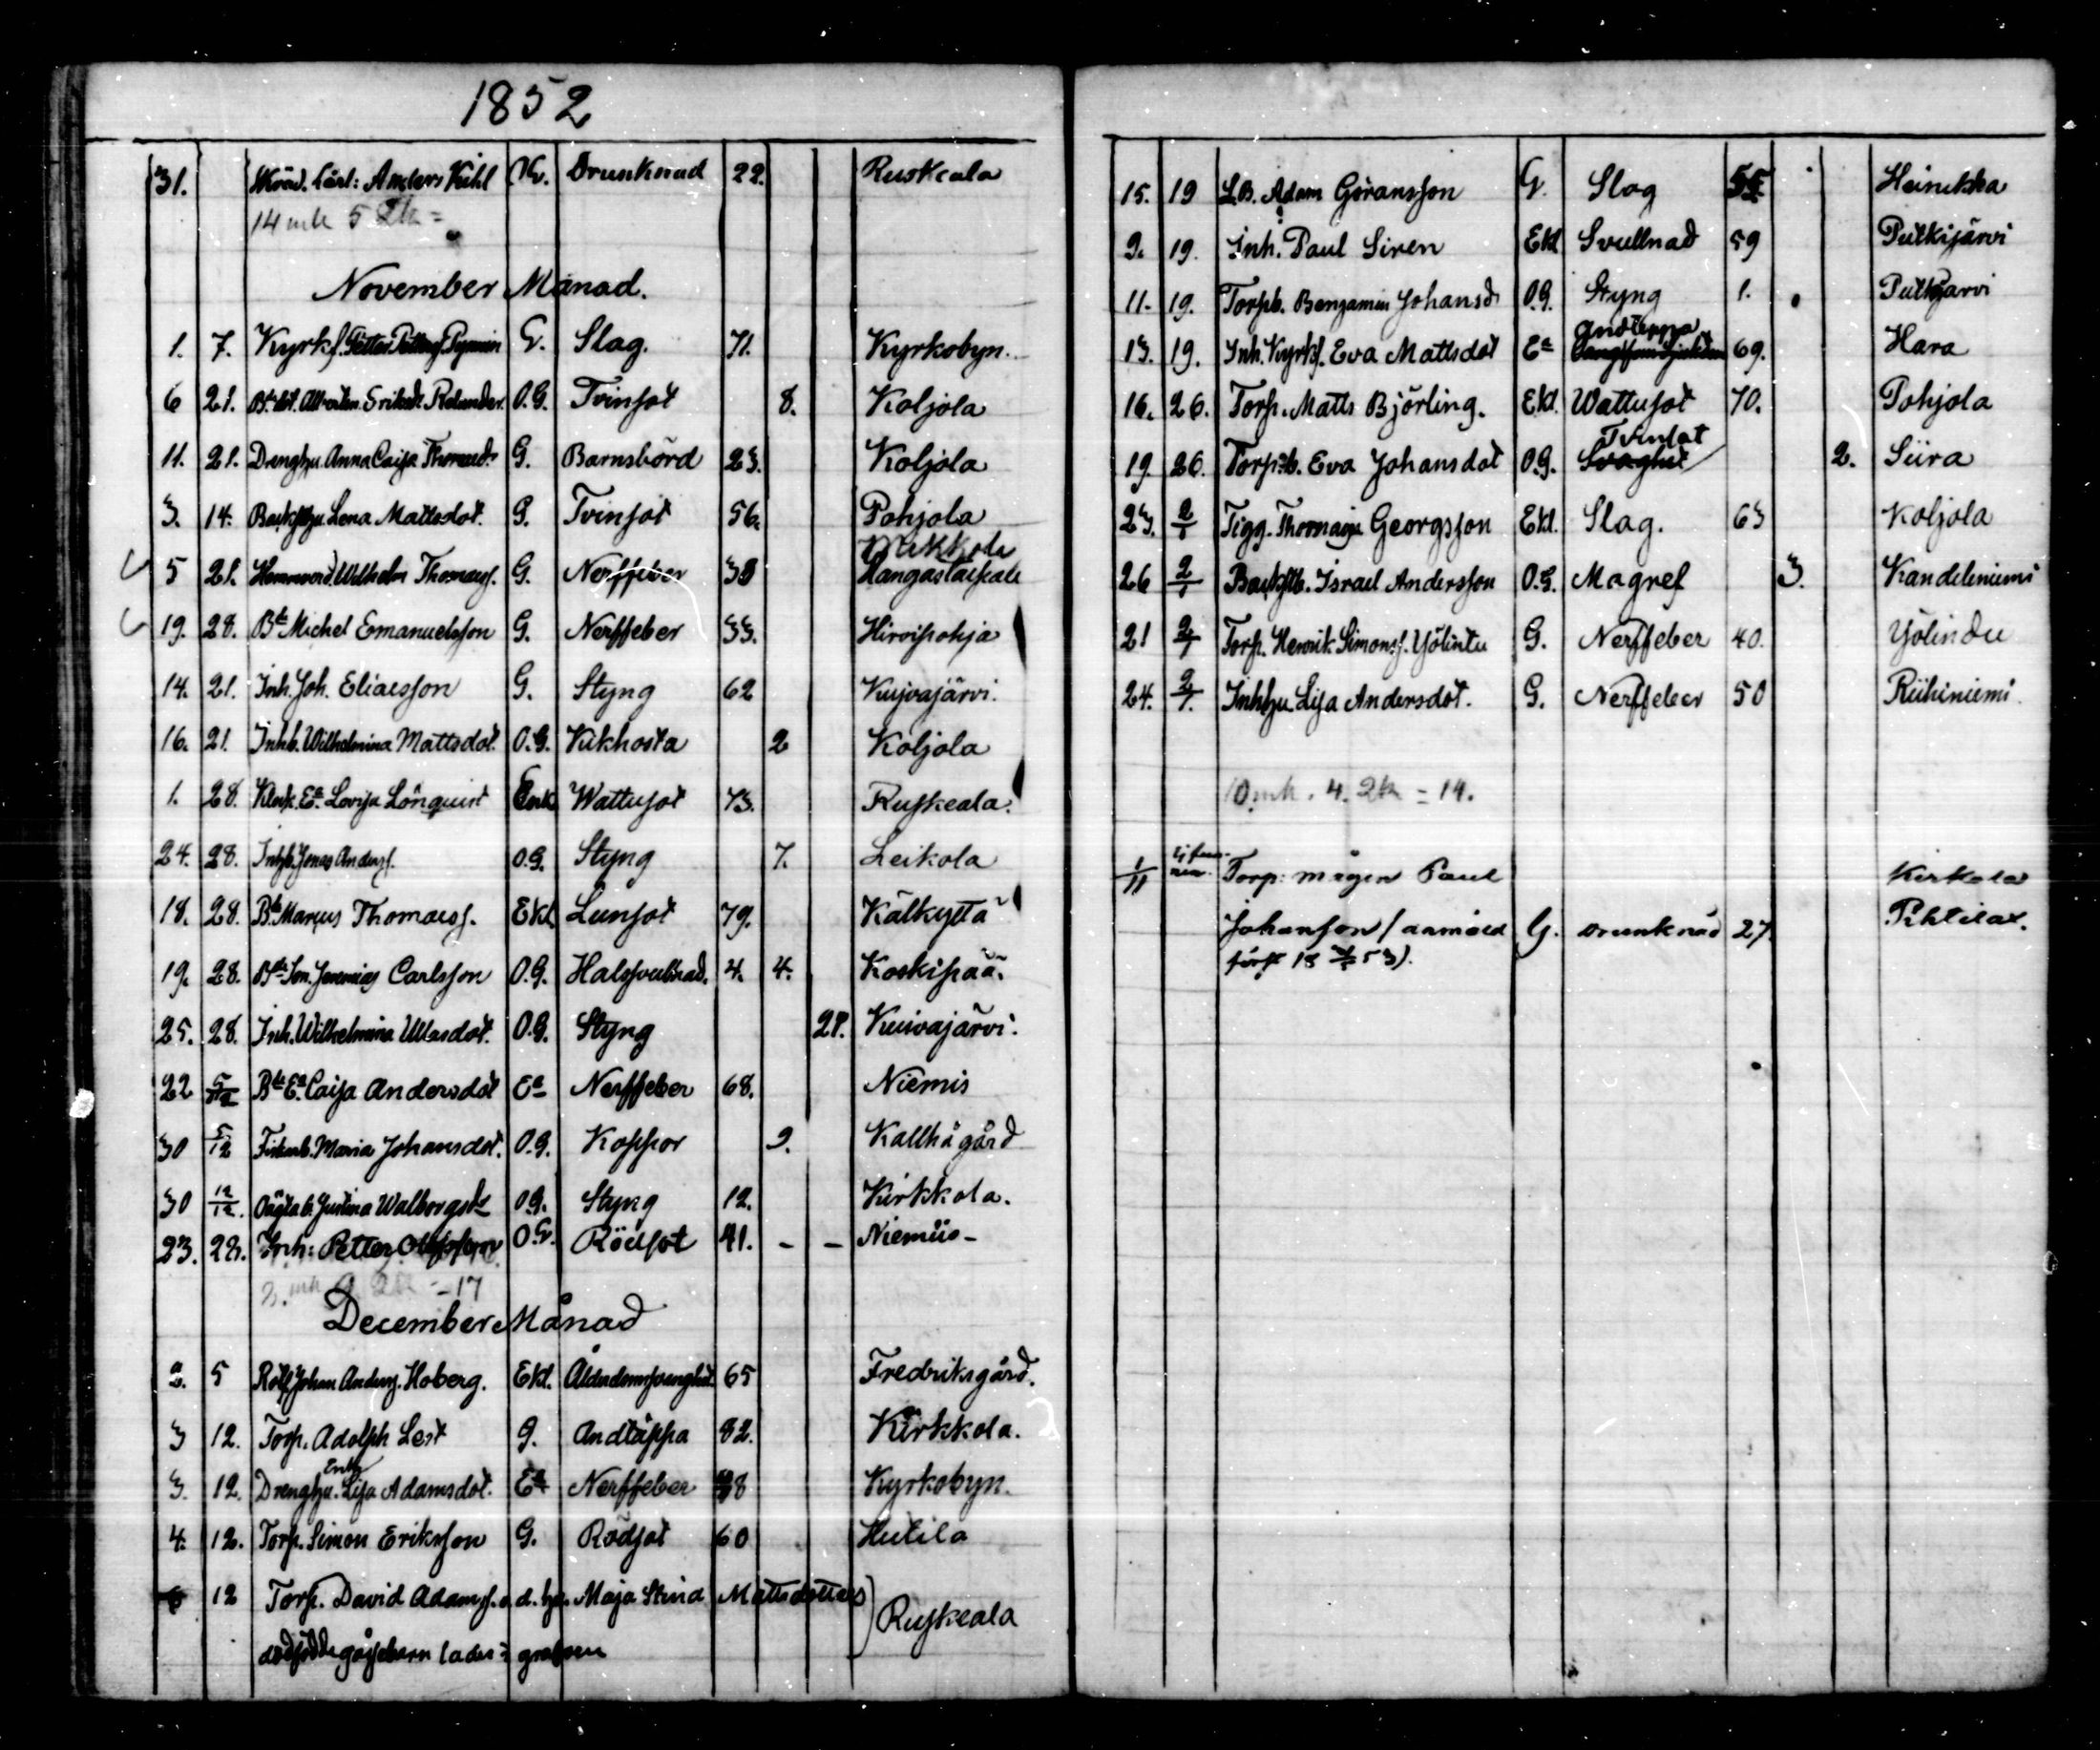 1852
31. Skräd. Lärl: Anders Kihl G. Drunknad 22. Ruskeala
14 mk 5
November Månad.
1. 7. Kyrkf. Petter G. Slag. 71. Kyrkobyn.
6 21. O.G. Tvinsot 8. Koljola
11. 21. Drenghu. Anna Caisa Thomasd. G. Barnsbörd 23. Koljola
3. 14. Lena Mattsdot. G. Tvinsot 56. Pohjola
Mikkola
5 21. Hemmavid. Wilhelm Thomass. G. Nerffeber 38
19. 28. Bde Michel Emanuelsson G. Nerffeber 33. Hirvipohja
14. 21. Inh. Joh. Eliaesson G. Styng 62 Kuivajärvi.
16. 21. Inhb. Wilhelmina Mattsdot. O.G. Kikhosta 2 Koljola
1. 28. Ea. Lovisa Lönquist Enk Wattusot 73. Ruskeala.
24. 28. Inhb. Jonas Anderss. O.G. Styng 7. Leikola
18. 28. Bde Marcus Thomaess. Ekl Lunsot 79. Kälkyttä
19. 28. Bde Son. Jeremias Carlsson O.G. Halssvullnad. 4. 4. Koskipää.
25. 28. Inh. Wilhelmina Ullasdot. O.G. Styng 28. Kuivajärvi.
22 5/12 Bde Ea. Caisa Andersdot Ea Nerffeber 68. Niemis
30 5/12 Maria Johansdot. O.G. Koppor 9. Kallhögård
30 12/12. Justina Walborgsdr O.G. Styng 12. Kirkkola.
23. 28. Inh: Petter O.G. Rödsot 41. - - Niemis -
17
December Månad
2. 5 Johan Anderss. Hoberg. Ekl. Ålderdomsvaghet 65 Fredriksgård.
3 12. Torp. Adolph Lest G. Andtäppa 82. Kirkkola.
Enk
3. 12. Drenghu. Lisa Adamsdot. Ea Nerffeber 38 Kyrkobyn.
4. 12. Torp. Simon Eriksson G. Rödsot 60 Hulila
6 12 Torp. David Adamss. o. d. hu. Maja Stina Mattsdotters
dödfödde gossebarn lades i grafven Ruskeala
15. 19 L.B. Adam Göransson G. Slag 55. Heinikka
9. 19. Inh. Paul Siren Ekl Svullnad 59 Pulkijärvi
11. 19. Torpb. Bengamin Johansd O.G. Styng 1. Pulkijärvi
Andtäppa
13. 19. Inh. Kyrkf. Eva Mattsdot Ea 69. Hara
16. 26. Torp. Matts Björling. Ekl. Wattusot 70. Pohjola
Tvinsot
19. 26. Torpb. Eva Johansdot O.G. Svaghet 2. Siira
23. 2/1 Tigg. Thomas Georgsson Ekl. Slag. 63 Koljola
26 2/1 Israel Andersson O.G. Magref 3. Kandeliniemi
21 2/1 Torp. Henrik Simonss. Yölintu G. Nerffeber 40. Yölindu
24. 2/1. Inhhu. Lisa Andersdot. G. Nerffeber 50 Riihiniemi
10. mk. 4. 2k = 14.
1/11 Torp: mågen Paul Kirkola
Johansson (anmäld G. drunknad 27. Pihtilax.
först 18 53).